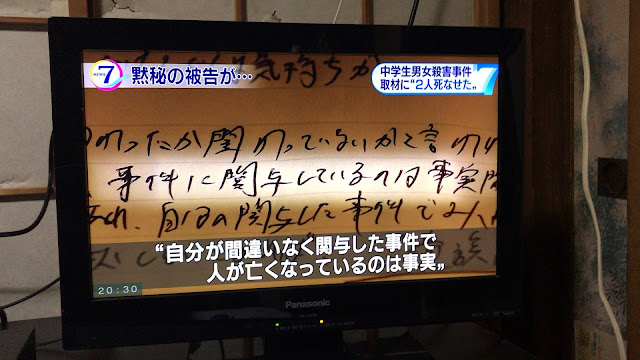 NEWS 7 黙秘の被告が…
中学生男女殺害事件
取材に“2人死なせた„
気持ちが
ったか関わっていないかと言
事件に関与しているのは事実
自分の関与した事件で2人
“自分が間違いなく関与した事件で
人が亡くなっているのは事実„
20:30
Panasonic